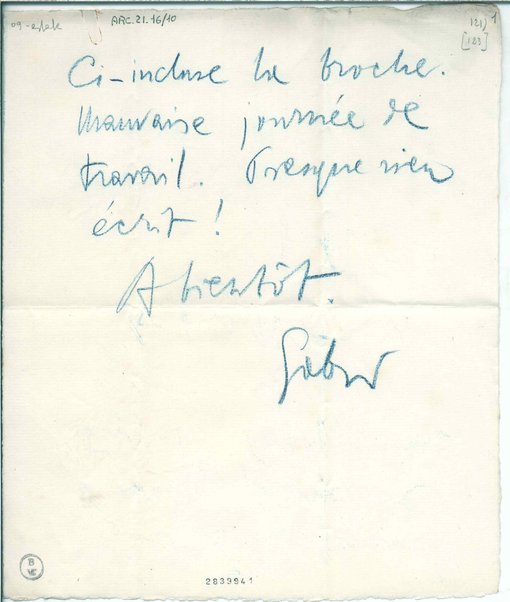 ARC.21.16/10
121) 1
[123]
Ci-incluse la broche.
Mauvaise journée de
travail. Presque rien
écrit!
A bientôt.
2833941